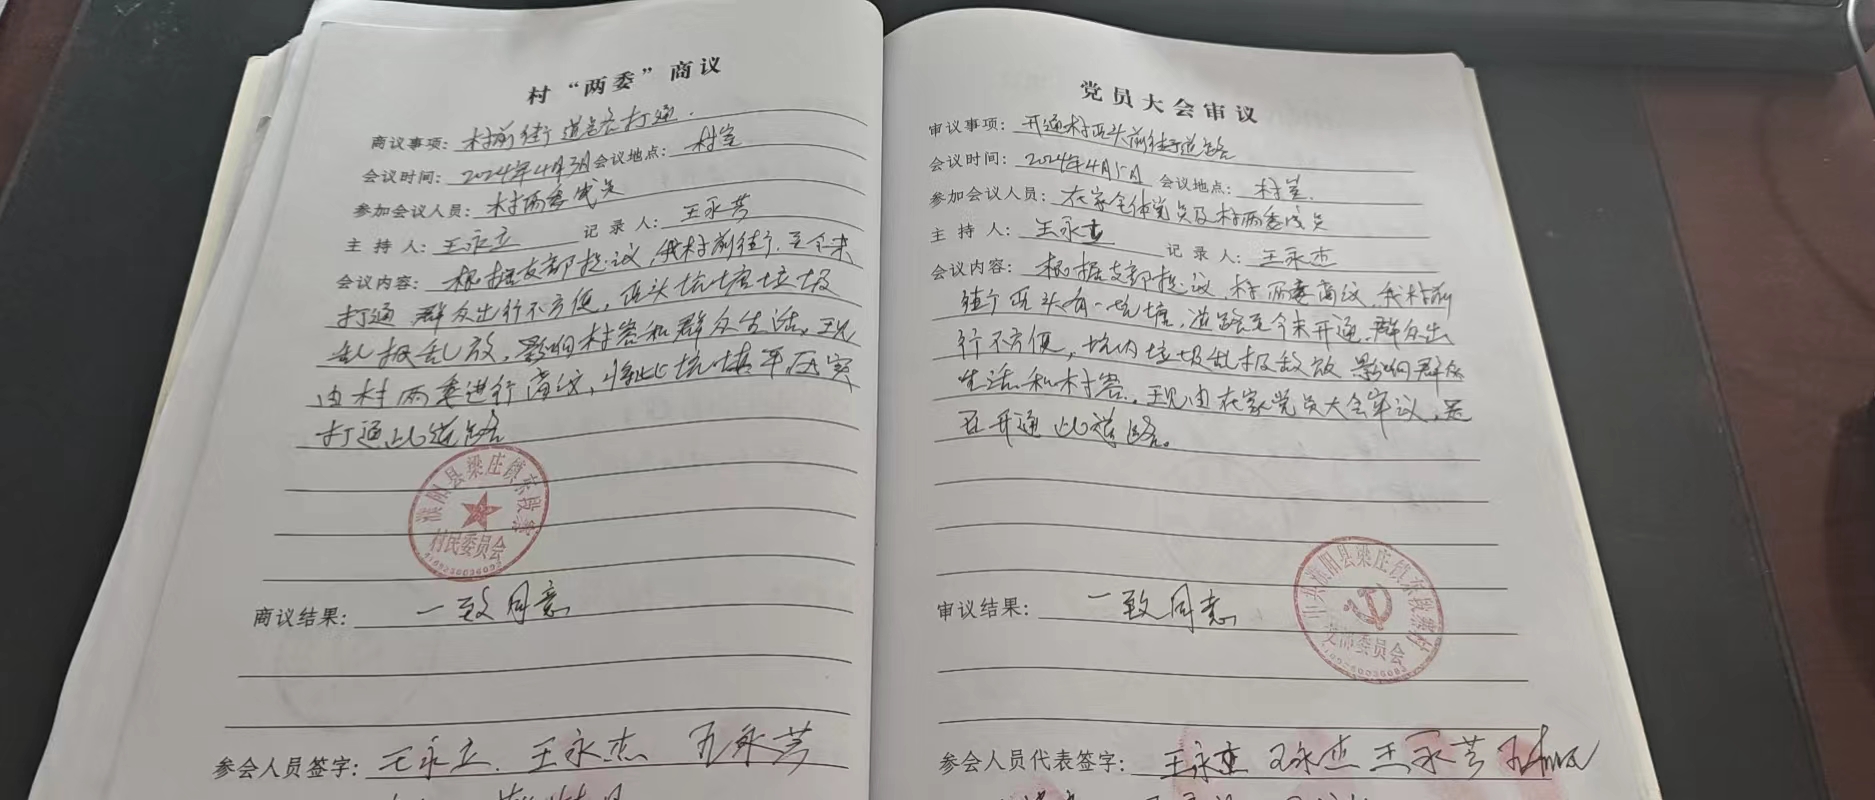 村“两委”商议
商议事项：村前街道路打通.
会议时间：2024年4月3日会议地点：村室
参加会议人员：村两委成员
主 持 人：王永立 记 录 人：王永芳
会议内容：根据支部提议,我村前街,至今未
打通 群众出行不方便,西头坑塘垃圾
乱扔乱放,影响村容和群众生活,现
由村两委进行商议,将此坑填平压实
打通此道路
濮阳县梁庄镇东段寨
村民委员会
商议结果：一致同意
参会人员签字：王永立. 王永杰 王永芳
党员大会审议
审议事项：开通村西头前街道路
会议时间：2024年4月5日 会议地点：村室.
参加会议人员：在家全体党员及村两委成员
主 持 人：王永立 记 录 人：王永杰
会议内容：根据支部提议,村两委商议,我村前
街西头有一坑塘,道路至今未开通,群众出
行不方便,坑内垃圾乱扔乱放 影响群众
生活和村容.现由在家党员大会审议,是
否开通此道路。
中共濮阳县梁庄镇东段寨村
支部委员会
审议结果：一致同意
参会人员代表签字：王永立 王永杰 王永芳